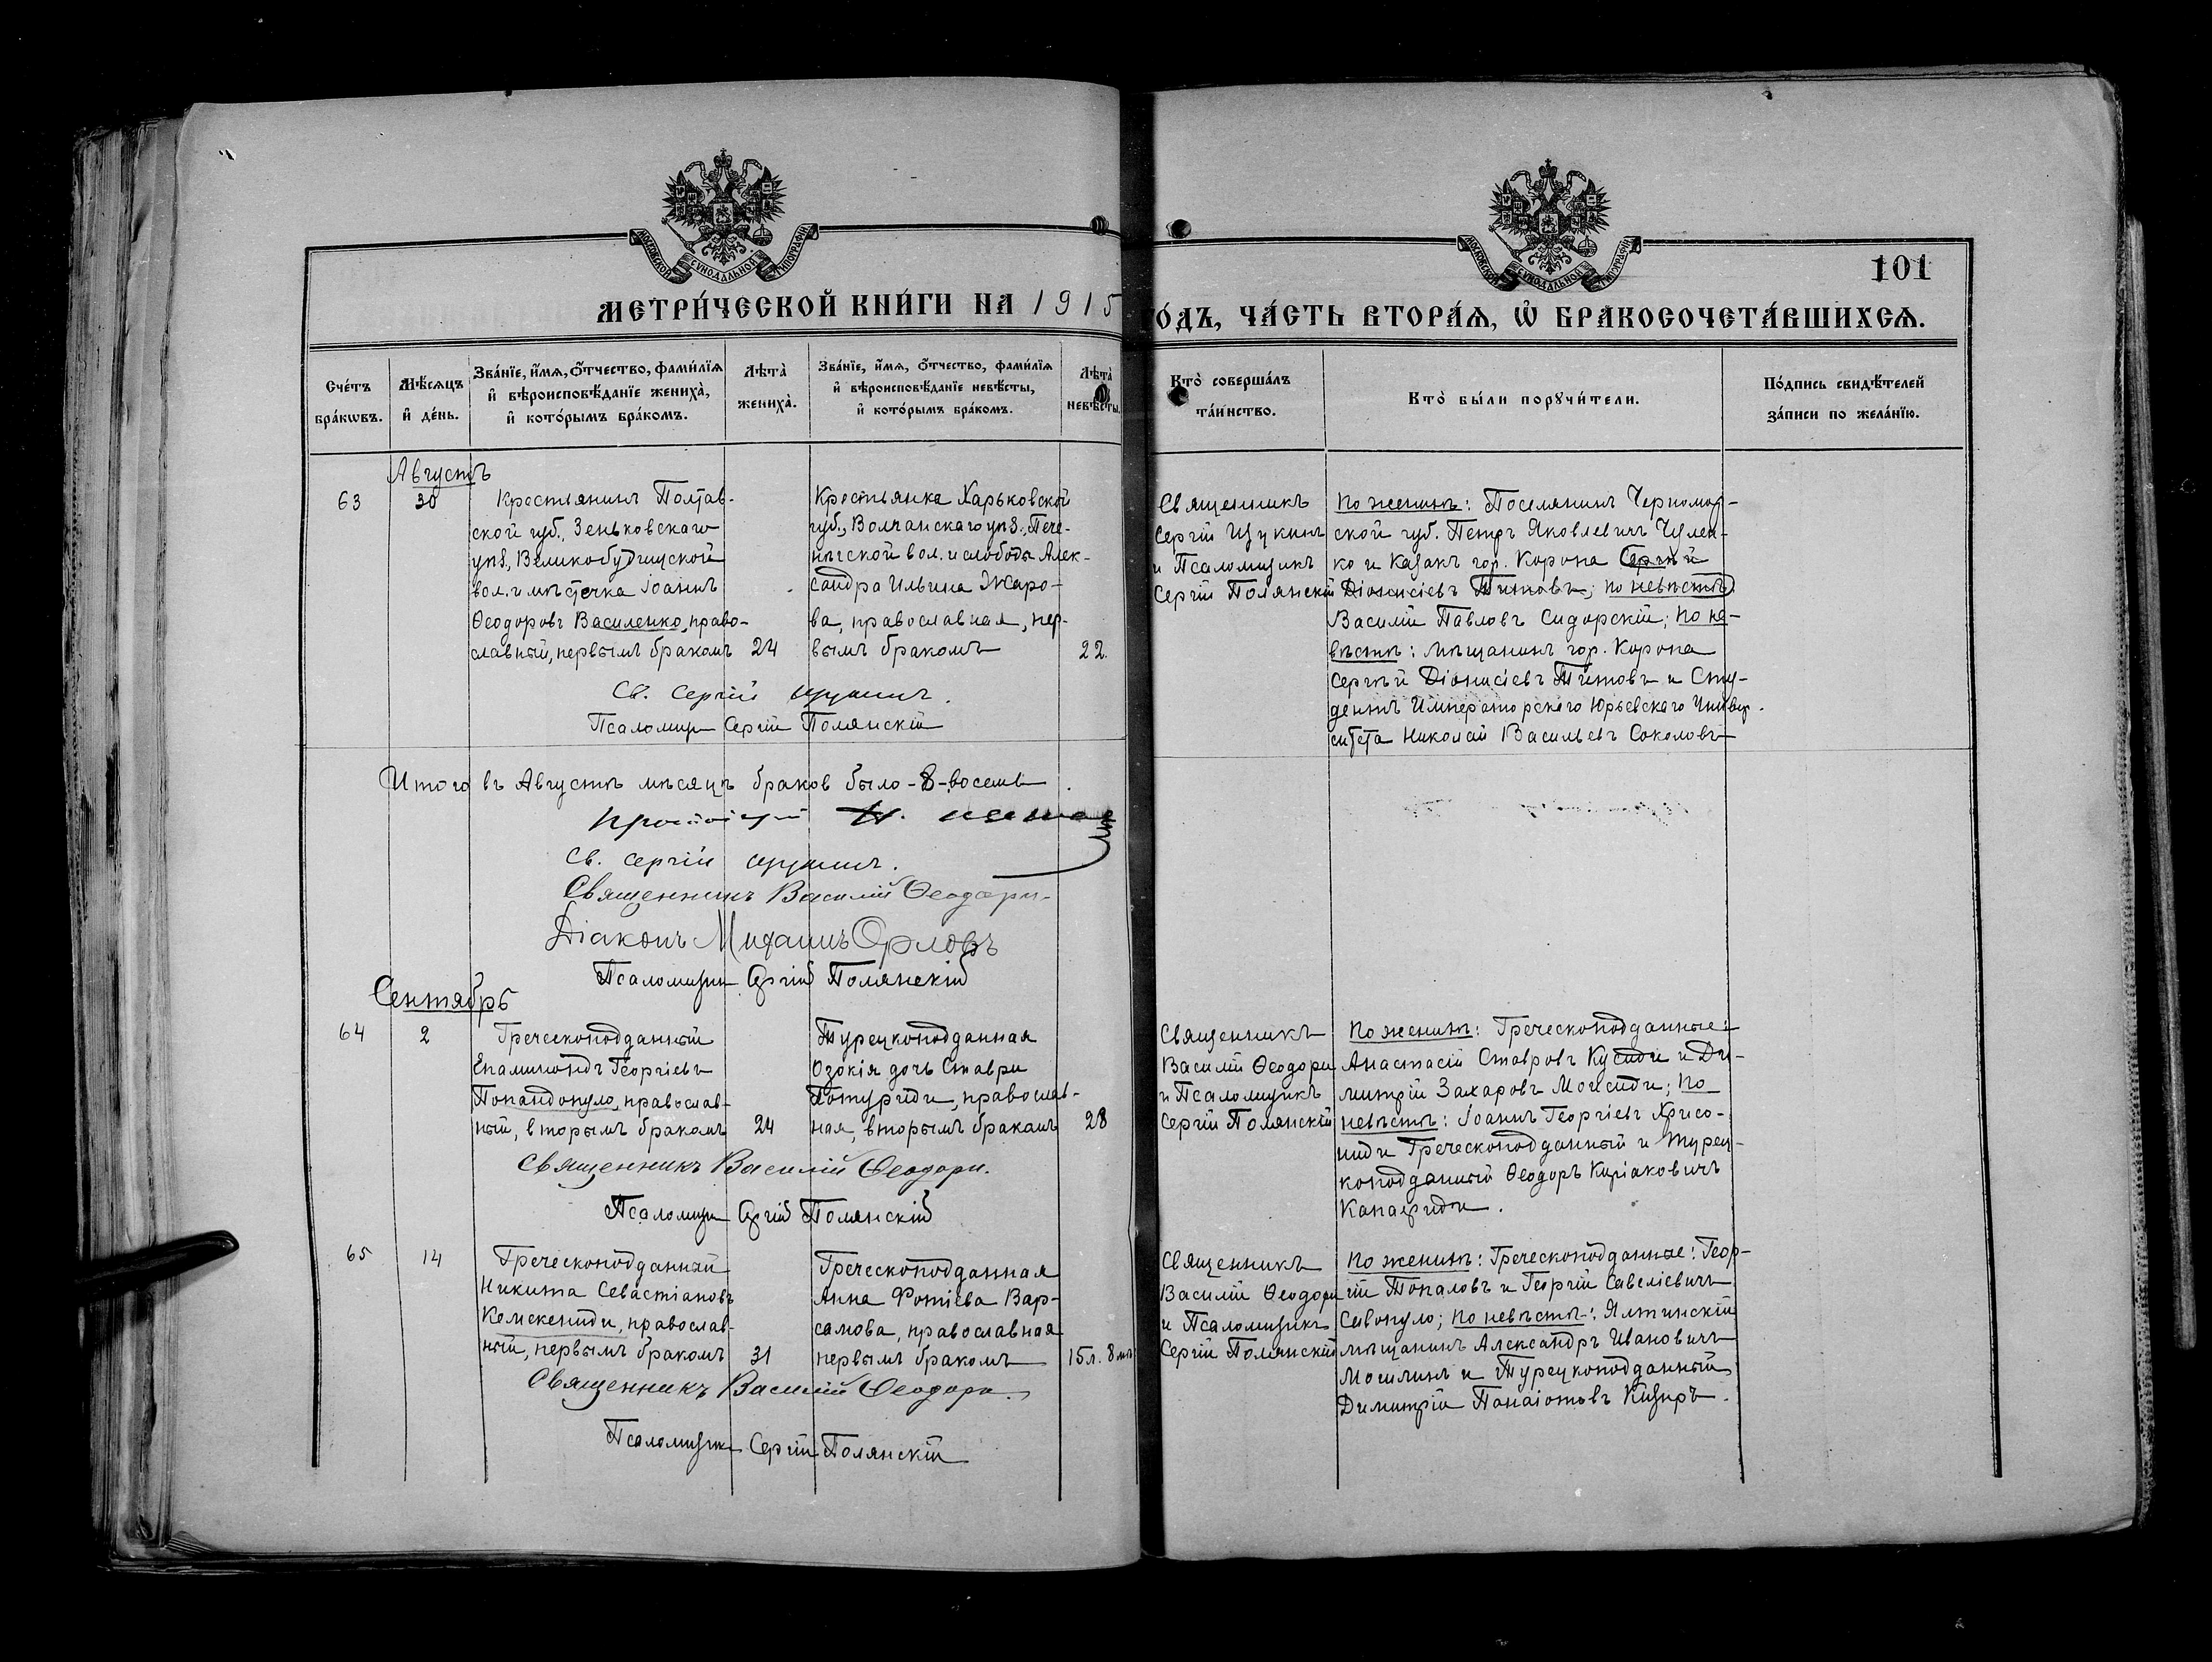 МОСКОВСКОЙ СѴНОДАЛЬНОЙ ТИПОГРАФІИ
МОСКОВСКОЙ СѴНОДАЛЬНОЙ ТИПОГРАФІИ
101
МЕТРИ́ЧЕСКОЙ КНИ́ГИ НА 1915
О́ДЪ, ЧА́СТЬ ВТОРА́Ѧ, Ѡ҆ БРАКОСОЧЕТА́ВШИХСѦ.
Сче́тъ бра́кѡвъ.
Мѣ́сѧцъ и҆ де́нь.
Зва́нїе, и҆́мѧ, ѻ҆́тчество, фами́лїѧ
и҆ вѣроисповѣ́данїе женихà,
и҆ кото́рымъ бра́комъ.
Лѣта̀ женихà.
Зва́нїе, и҆́мѧ, ѻ҆́тчество, фами́лїѧ
и҆ вѣроисповѣ́данїе невѣ́сты,
и҆ кото́рымъ бра́комъ.
Лѣта̀ невѣ́сты.
Кто̀ соверша́лъ та́инство.
Кто̀ бы́ли порꙋчи́тели.
По́дпись свидѣ́телей
за́писи по жела́нїю.
Августъ
63
30
Крестьянинъ Полтав-
ской губ., Зеньковскаго
уѣз., Великобудищской
вол. и мѣстечка Іоаннъ
Ѳеодоровъ Василенко, право-
славный, первымъ бракомъ
24
Крестьянка Харьковской
губ., Волчанскаго уѣз., Пече-
нѣгской вол. и слободы Алек-
сандра Ильина Жаро-
ва, православная, пер-
вымъ бракомъ
22.
Священникъ
Сергій Щукинъ
и Псаломщикъ
Сергій Полянскій
По женихѣ: Поселянинъ Черномор-
ской губ. Петръ Яковлевичъ Чулен-
ко и Казакъ гор. Корона Сергѣй
Діонисіевъ Титовъ; по невѣстѣ
Василій Павловъ Сидорскій; по не-
вѣстѣ: мѣщанинъ гор. Корона
Сергѣй Діонисіевъ Титовъ и Сту-
дентъ Императорскаго Юрьевскаго Универ-
ситета Николай Васильевъ Соколовъ
Св. Сергій Щукинъ.
Псаломщ Сергій Полянскій
Итого въ Августѣ мѣсяцѣ браков было - 8 - восемь.
Протоіерей
Св. Сергій Щукинъ.
Священникъ Василій Ѳеодори
Діаконъ Михаилъ Орловъ
Псаломщик Сергій Полянскій
Сентябрь
64
2
Греческоподданный
Епаминондъ Георгіевъ
Попандопуло, православ-
ный, вторымъ бракомъ
24
Турецкоподданная
Озокія дочь Ставри
Потуриди, православ-
ная, вторымъ бракомъ
28
Священникъ
Василій Ѳеодори
и Псаломщикъ
Сергій Полянскій
По женихѣ: Греческоподданные:
Анастасій Ставровъ Кусиди и Ди-
митрій Захаровъ Моисиди; По
невѣстѣ: Іоаннъ Георгіевъ Хрисо-
ниди Греческоподданный и турец-
коподданный Ѳеодоръ Киріаковичъ
Священникъ Василій Ѳеодори.
Псаломщи Сергій Полянскій
65
14
Греческоподданный
Никита Севастіановъ
Кемскениди, православ-
ный, первымъ бракомъ
31
Греческоподданная
Анна Фотіева Вар-
самова, православная
первымъ бракомъ
15 л. 8 мѣ
Священникъ
Василій Ѳеодори
и Псаломщикъ
Сергій Полянскій
По женихѣ: Греческоподданные: Геор-
гій Топаловъ и Георгій Савеліевичъ
Савопуло; по невѣстѣ: Ялтинскій
мѣщанинъ Александръ Ивановичъ
Мошлинъ и Турецкоподданный
Димитрій Панаіотовъ Кизиръ.
Священникъ Василій Ѳеодори.
Псаломщик Сергій Полянскій